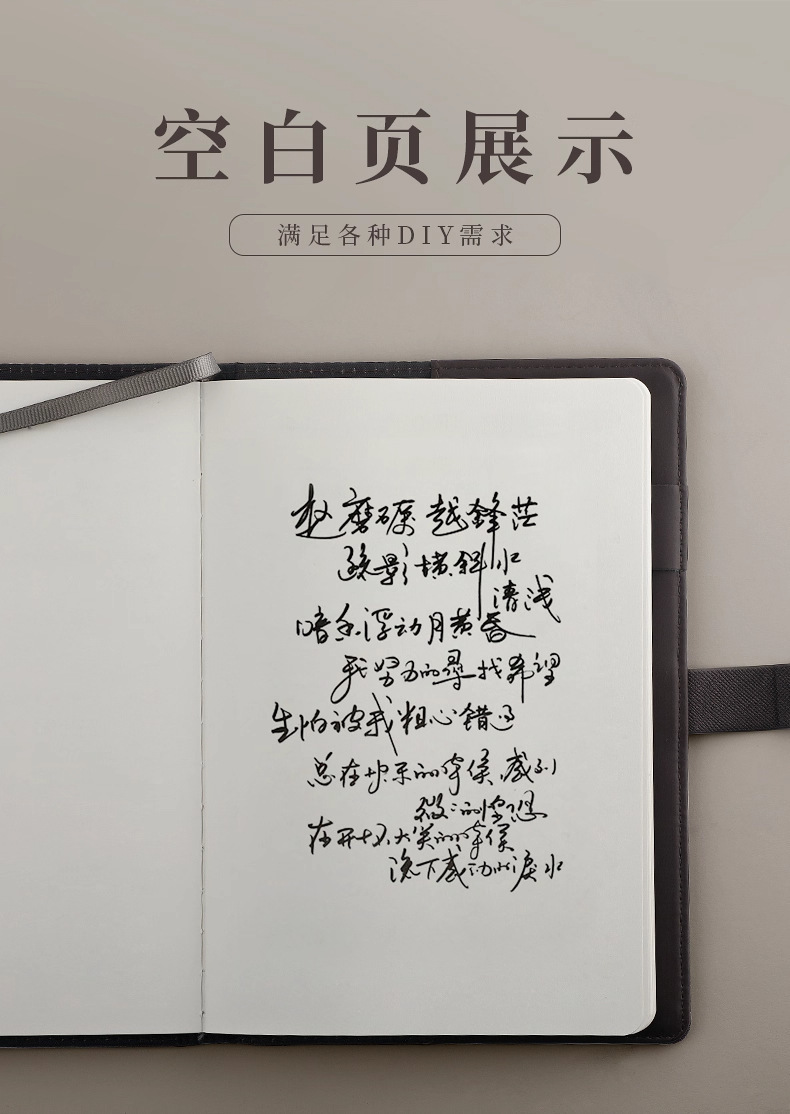 空白页展示
满足各种DIY需求
越磨砺越鋒茫
疏影横斜水
清浅
暗香浮动月黄昏
我努力的尋找希望
生怕被我粗心錯过
总在快乐的時候,感到
的惶恐
在开怀大笑的時候
流下感动的淚水